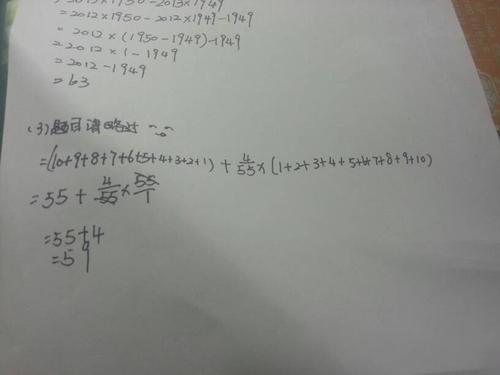 2013×1950-2013×1949
=2012×1950-2012×1949-1949
=2012×(1950-1949)-1949
=2012×1-1949
=2012-1949
=63
(3)题目请略过
=(10+9+8+7+6+5+4+3+2+1)+4/55×(1+2+3+4+5+6+7+8+9+10)
=55+4/55×55/1
=55+4
=59